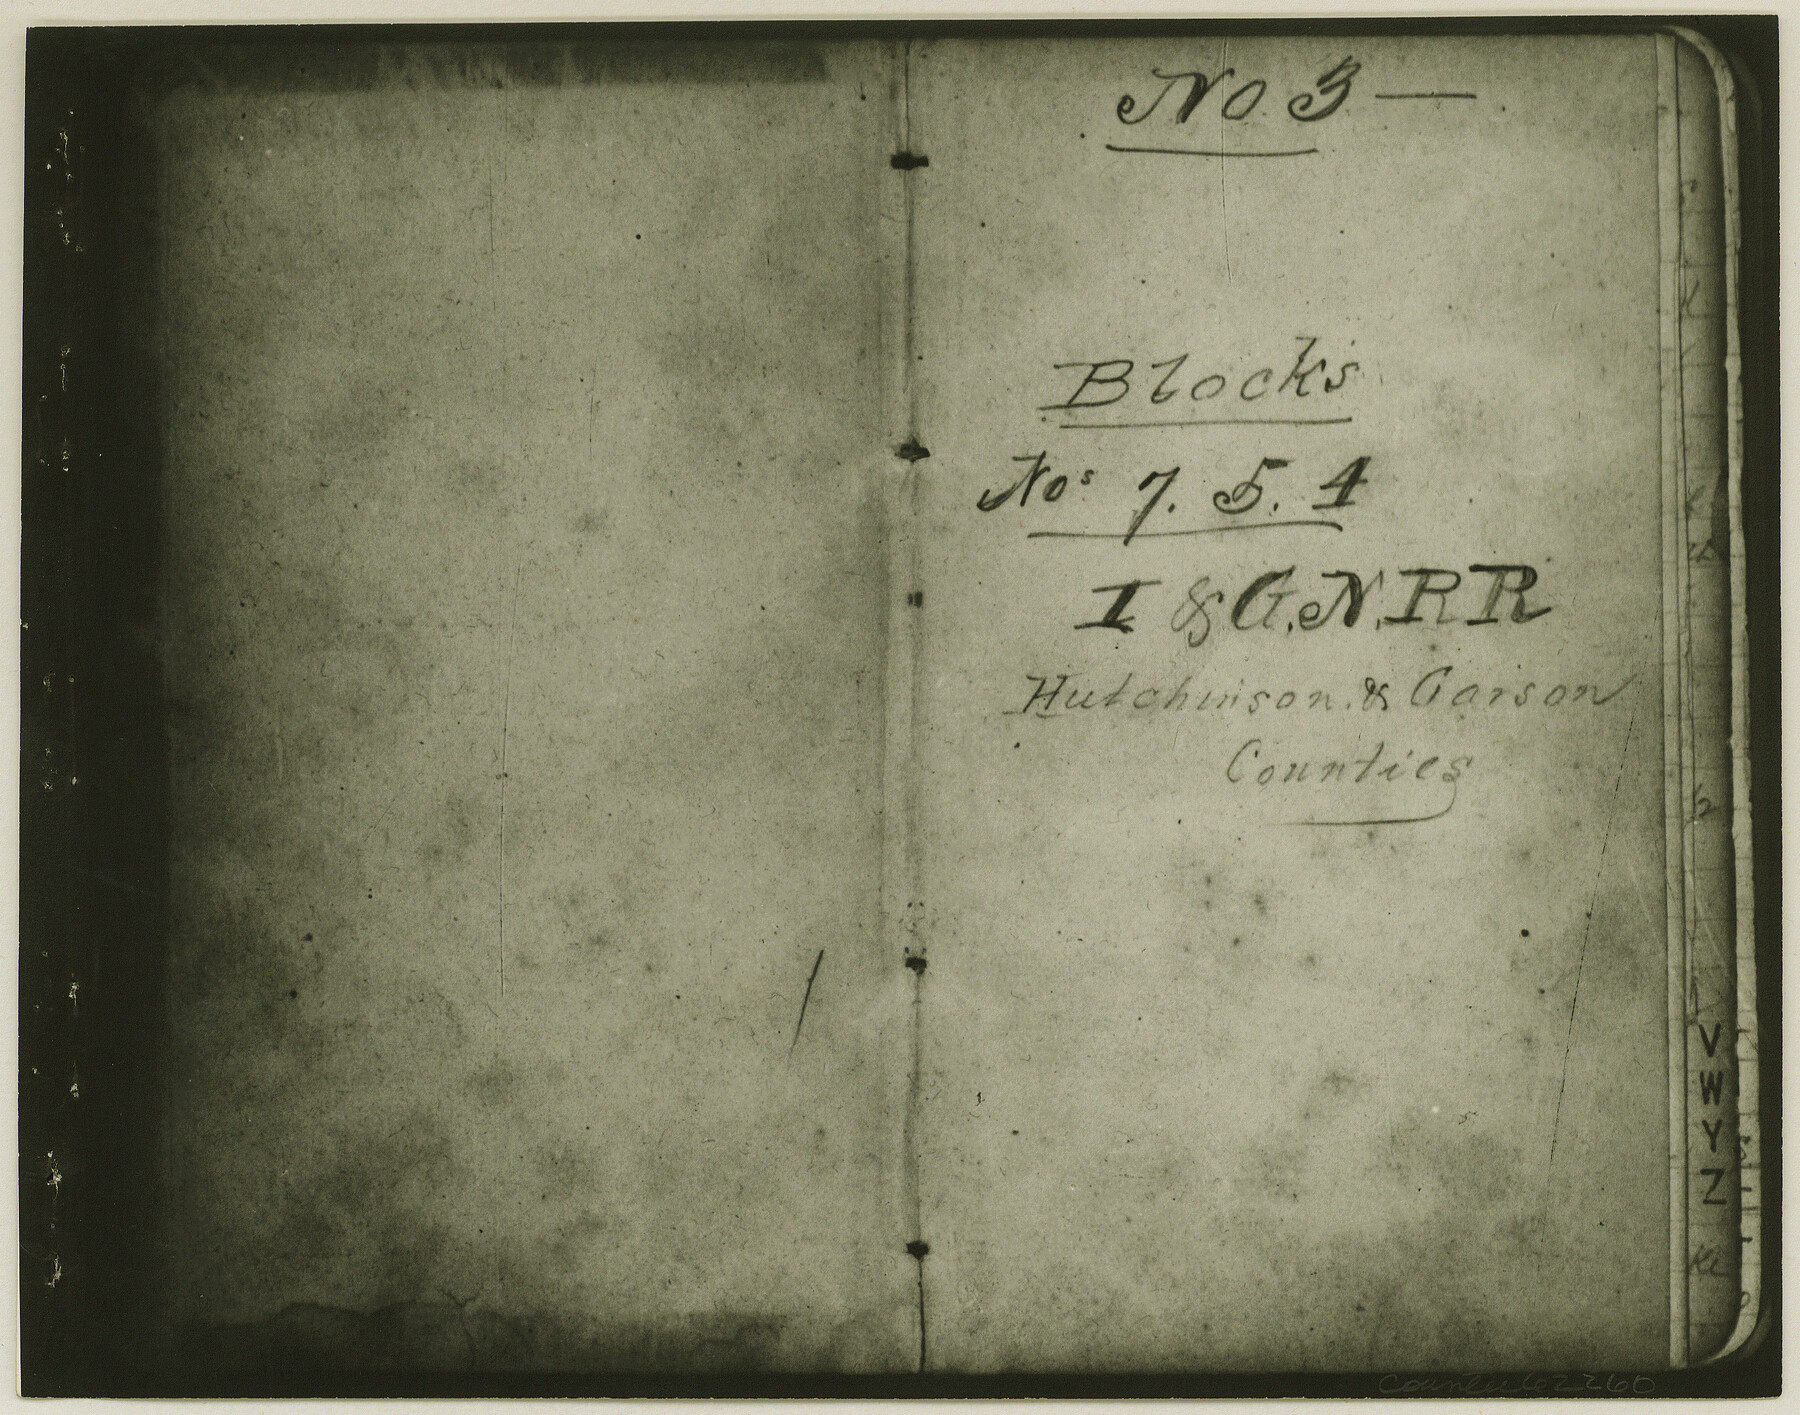 No. 3 —
Blocks
Nos 7. 5. 4
I & G. N. R R
Hutchinson. & Carson
Counties
V
W
Y
Z